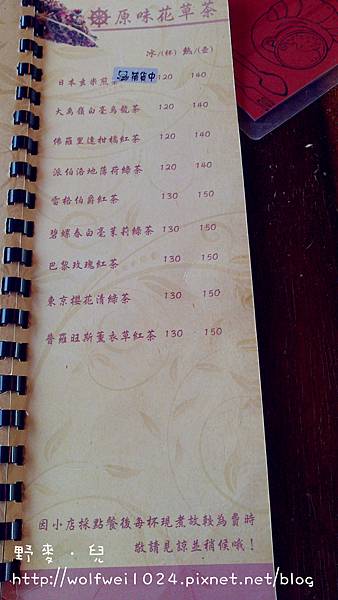 原味花草茶
冰/(杯) 熱/(壺)
日本玄米煎茶 120 140
大禹嶺白毫烏龍茶 120 140
佛羅里達柑橘紅茶 120 140
派伯洛地薄荷綠茶 120 140
雷格伯爵紅茶 130 150
碧螺春白毫茉莉綠茶 130 150
巴黎玫瑰紅茶 130 150
東京櫻花清綠茶 130 150
普羅旺斯薰衣草紅茶 130 150
因小店採點餐後每杯現煮故較為費時
敬請見諒並稍候哦！
野麥·兒
http://wolfwei1024.pixnet.net/blog